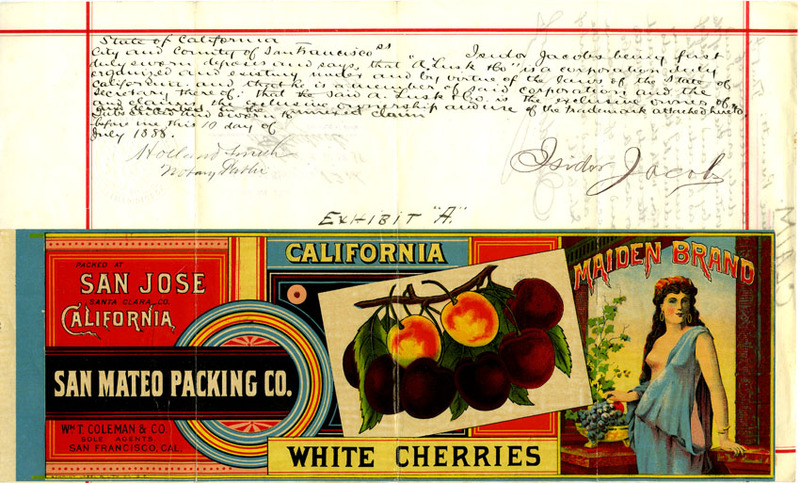 State of California
City and County of San Francisco ss
Isidor Jacobs being first
duly sworn deposes and says, that "A Lusk & Co" is a corporation duly
organized and existing under and by virtue of the laws of the State of
California, and that he is a member of said corporation and the
Secretary thereof, that the said A Lusk & Co. is the exclusive owner of
and claims the exclusive ownership and use of the trademark attached hereto
in the annexed claim
Subscribed and sworn to
before me this 10 day of
July 1888.
Holland Smith
Notary Public
Isidor Jacobs
EXHIBIT "A."
PACKED AT
SAN JOSE
SANTA CLARA CO.
CALIFORNIA
SAN MATEO PACKING CO.
WM T. COLEMAN & CO.
SOLE AGENTS
SAN FRANCISCO, CAL.
CALIFORNIA
WHITE CHERRIES
MAIDEN BRAND